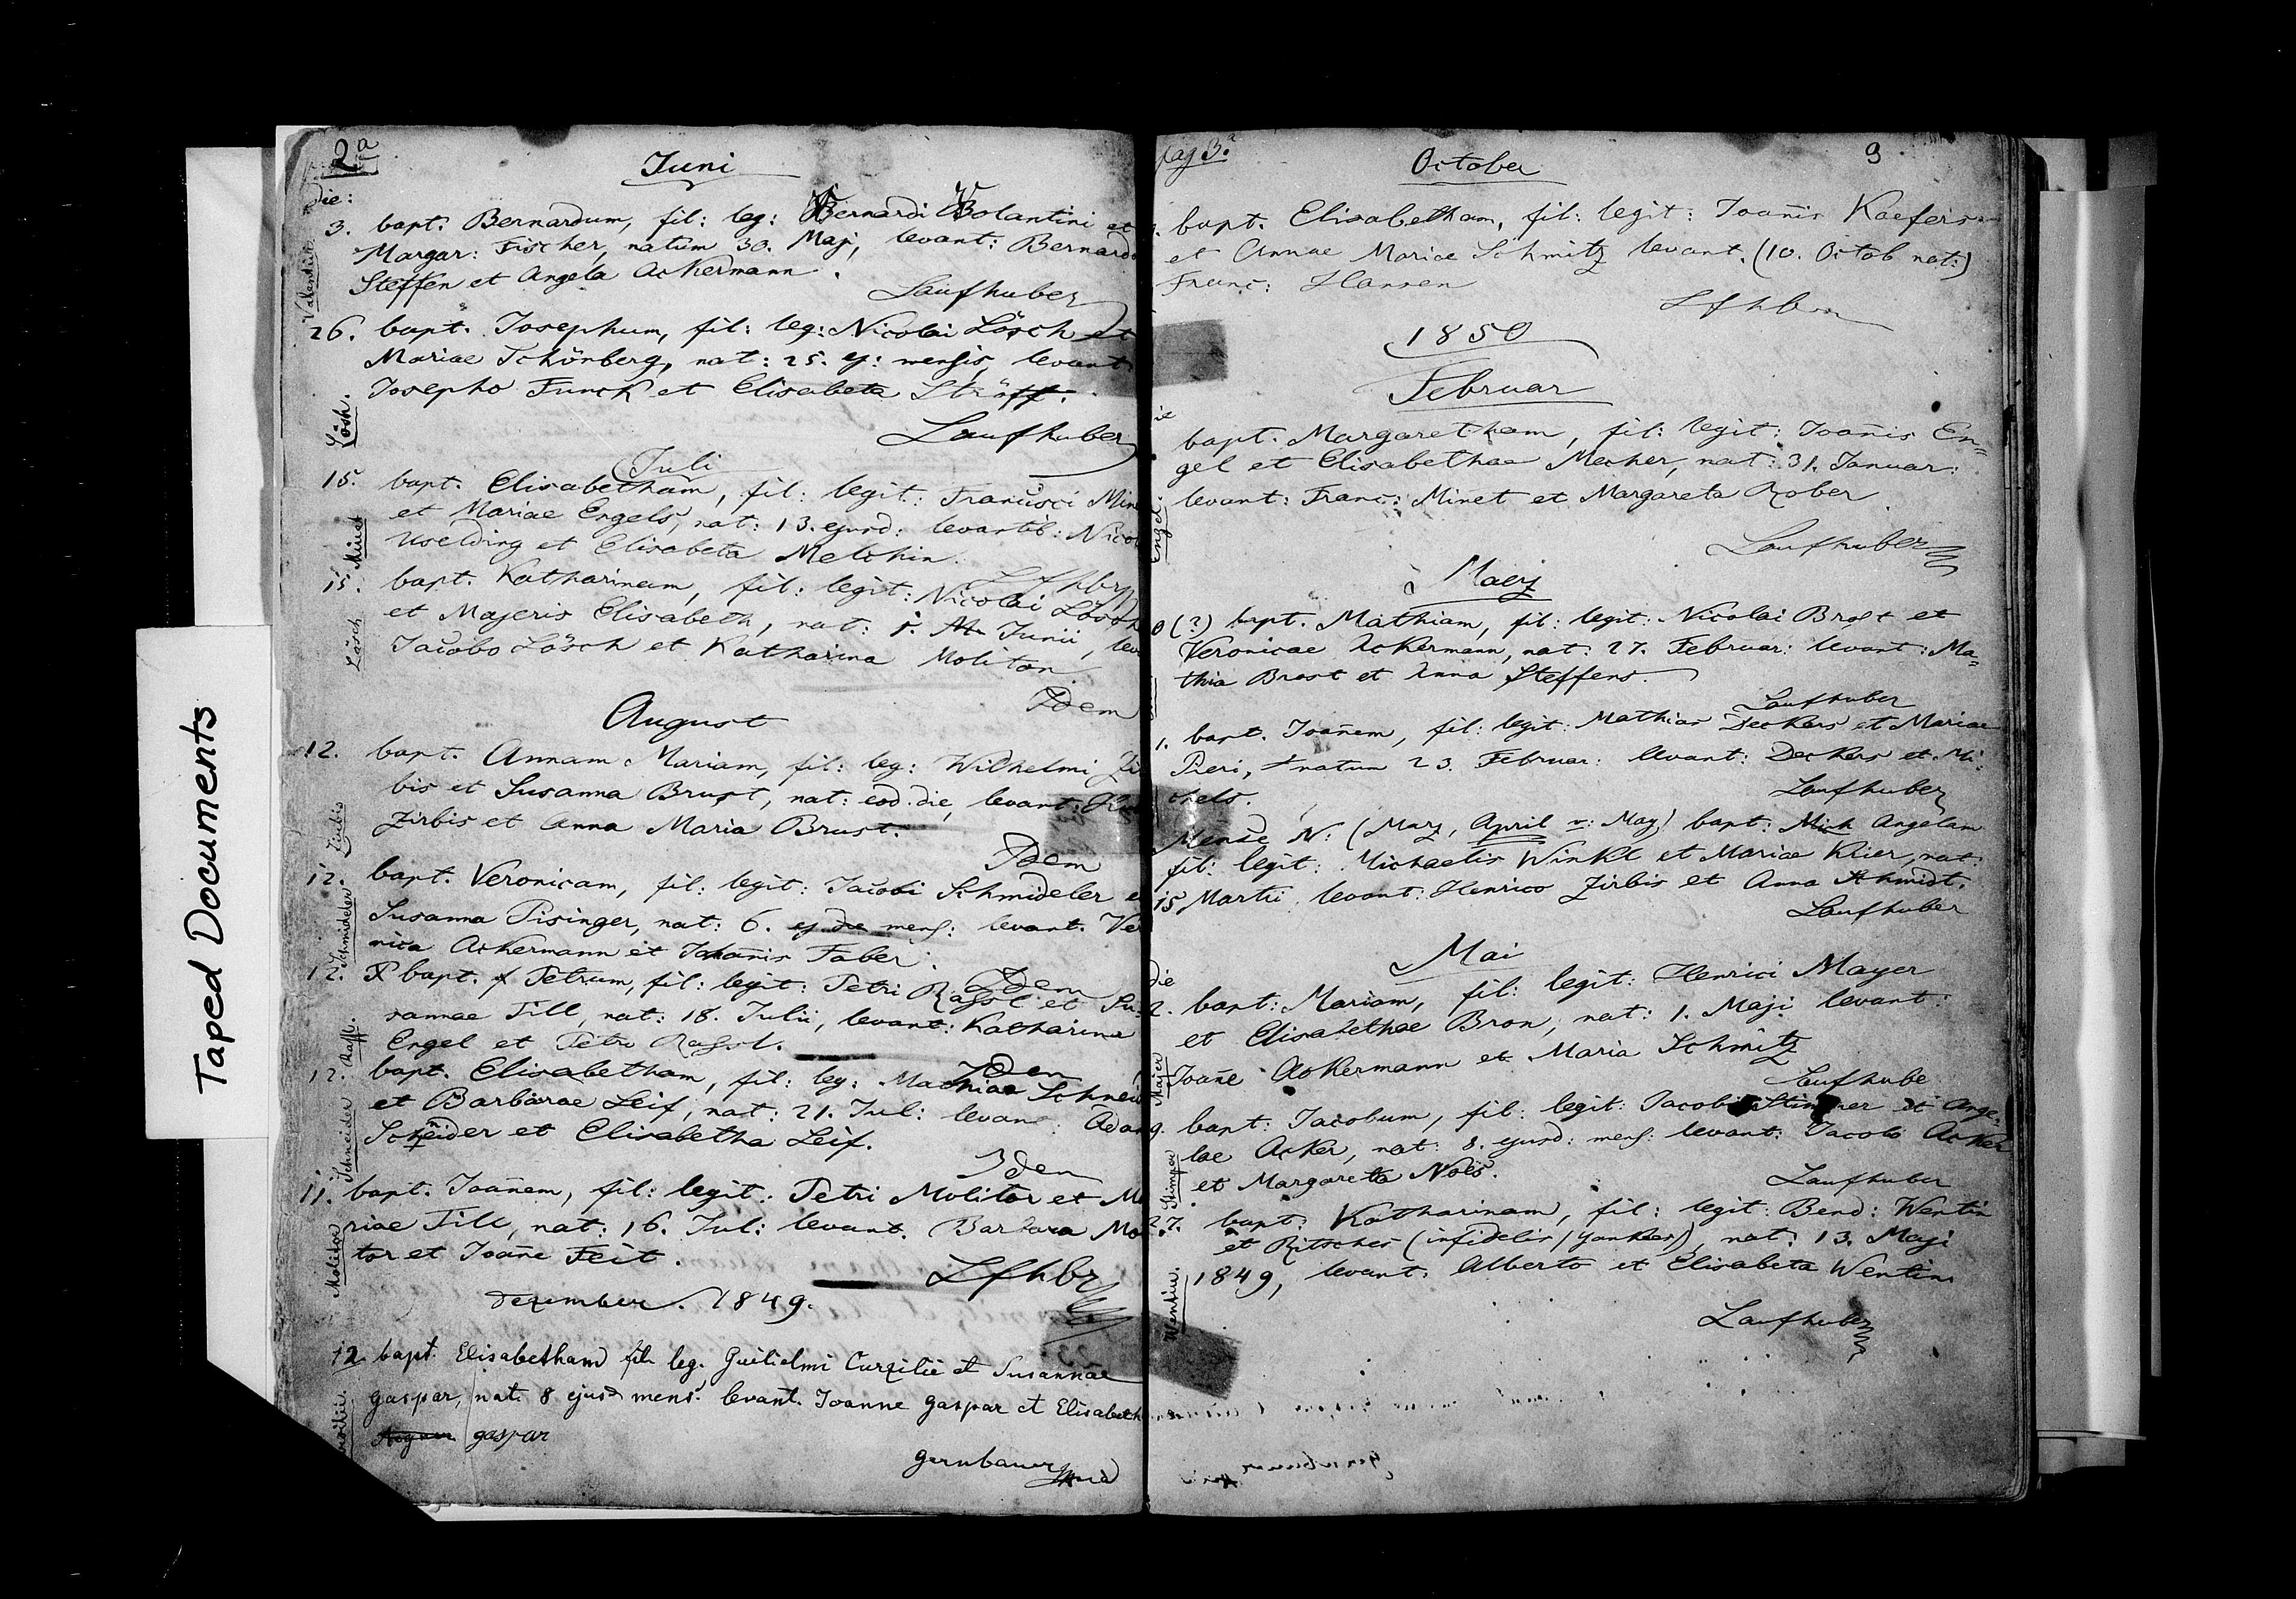 Taped Documents
2ª
Juni
die:
3. bapt. Bernardum, fil: leg: Bernardi Bolantini et
Margar: Fischer, natum 30. Maj, levant: Bernardo
Steffen et Angela Ackermann.
Valentin
Laufhuber
26. bapt. Josephum, fil: leg: Nicolai Lösch et
Mariae Schönberg, nat: 25. ej: mensis, levant
Josepho Funck et Elisabeta Sträff.
Lösh.
Laufhuber
Juli
15. bapt. Elisabetham, fil: legit: Francisci Min
et Mariae Engels, nat: 13. ejusd: levantib: Nicol
Uselding et Elisabeta Melchin.
Minet
Lfhbr
15. bapt. Katharinam, fil: legit: Nicolai Lösch
et Majeris Elisabeth, nat: 1. Junii, lev
Jacobo Lösch et Katharina Molitor
Lösch
Idem
August
12. bapt. Annam Mariam, fil: leg: Wilhelmi Zir
bis et Susanna Brust, nat: eod. die, levant:
Zirbis et Anna Maria Brust.
Zirbis
Idem
12. bapt. Veronicam, fil: legit: Jacobi Schmideler e
Susanna Pisinger, nat: 6. ej die mens: levant. Ve
nica Ackermann et Johanis Faber.
Schmideler
Idem
12. bapt. Petrum, fil: legit: Petri Rassl et Su:
sannae Till, nat: 18. Julii, levant: Katharina
Engel et Petro Rassl.
Rassl.
Idem
12. bapt. Elisabetham, fil: leg: Mathiae Schnei
et Barbarae Leif, nat: 21. Jul: levan: Adam
Schneider et Elisabetha Leif.
Schneider
Idem
11. bapt. Joañem, fil: legit: Petri Molitor et Ma
riae Till, nat: 16. Jul: levant. Barbara Mo
tor et Joañe Feit.
Molidor
Lfhbr
Dezember. 1849.
12 bapt. Elisabetham fil. leg. Guilielmi Curzilii et Susannae
Gaspar, nat. 8 ejusd mens. levant. Joanne Gaspar et Elisabeth
Gaspar
Gernbauer
pag 3.ª
October
3
bapt. Elisabetham, fil: legit: Joañis Kaefer
et Annae Mariae Schmitz levant. (10. Octob nat:)
Franc: Hansen
Lfhbr
1850
Februar
bapt. Margaretham, fil: legit: Joañis En=
gel et Elisabethae Mecher, nat: 31. Januar:
levant: Franc: Minet et Margareta Rober
Engel.
Laufhuber
Maerz
0 (?) bapt. Mathiam, fil: legit: Nicolai Brost et
Veronicae Ackermann, nat: 27. Februar: levant: Ma=
thia Brost et Anna Steffens.
Laufhuber
1. bapt. Joañem, fil: legit: Mathias Deckers et Mariae
Pieri, natum 23. Februar: levant: Deckers et Mi:
chels.
Laufhuber
Mense N: (Marz, April v: May) bapt: Mich Angelam
fil: legit: Michaelis Winkl et Mariae Klier, nat:
15 Martii levant: Henrico Zirbis et Anna Schmidt.
Laufhuber
Mai
die
2. bapt: Mariam, fil: legit: Henrici Mayer
et Elisabethae Bron, nat: 1. Maji levant:
Joañe Ackermann et Maria Schmitz
Majer
Laufhube
9. bapt: Jacobum, fil: legit: Jacobi Stimper et Ange:
lae Acker, nat: 8. ejusd: mens: levant: Jacobo Acker
et Margareta Noës.
Stimper
Laufhuber
27. bapt: Katharinam, fil: legit: Bend: Wentin
et Ritscher (infidelis/yankee), nat: 13. Maji
1849, levant: Alberto et Elisabeta Wentin
Wentin.
Laufhuber